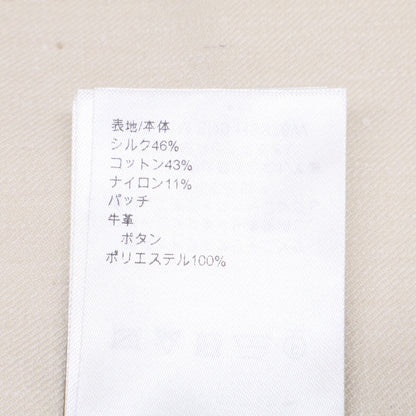 表地/本体
シルク46%
コットン43%
ナイロン11%
パッチ
牛革
ボタン
ポリエステル100%